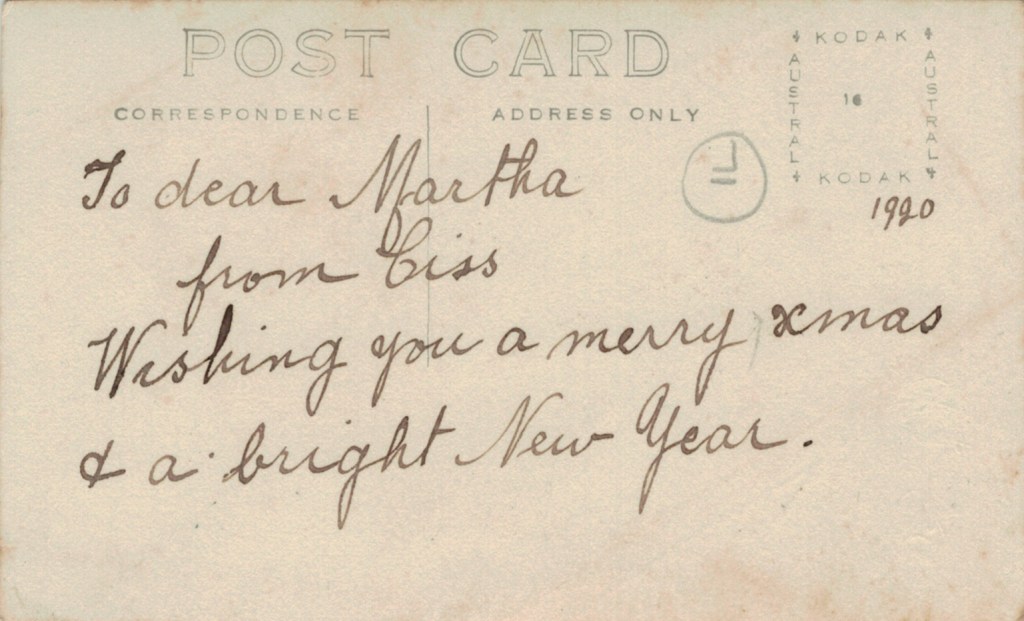 POST CARD
CORRESPONDENCE
ADDRESS ONLY
KODAK
AUSTRAL
16
AUSTRAL
KODAK
1920
To dear Martha
from Ciss
Wishing you a merry xmas
& a bright New Year.